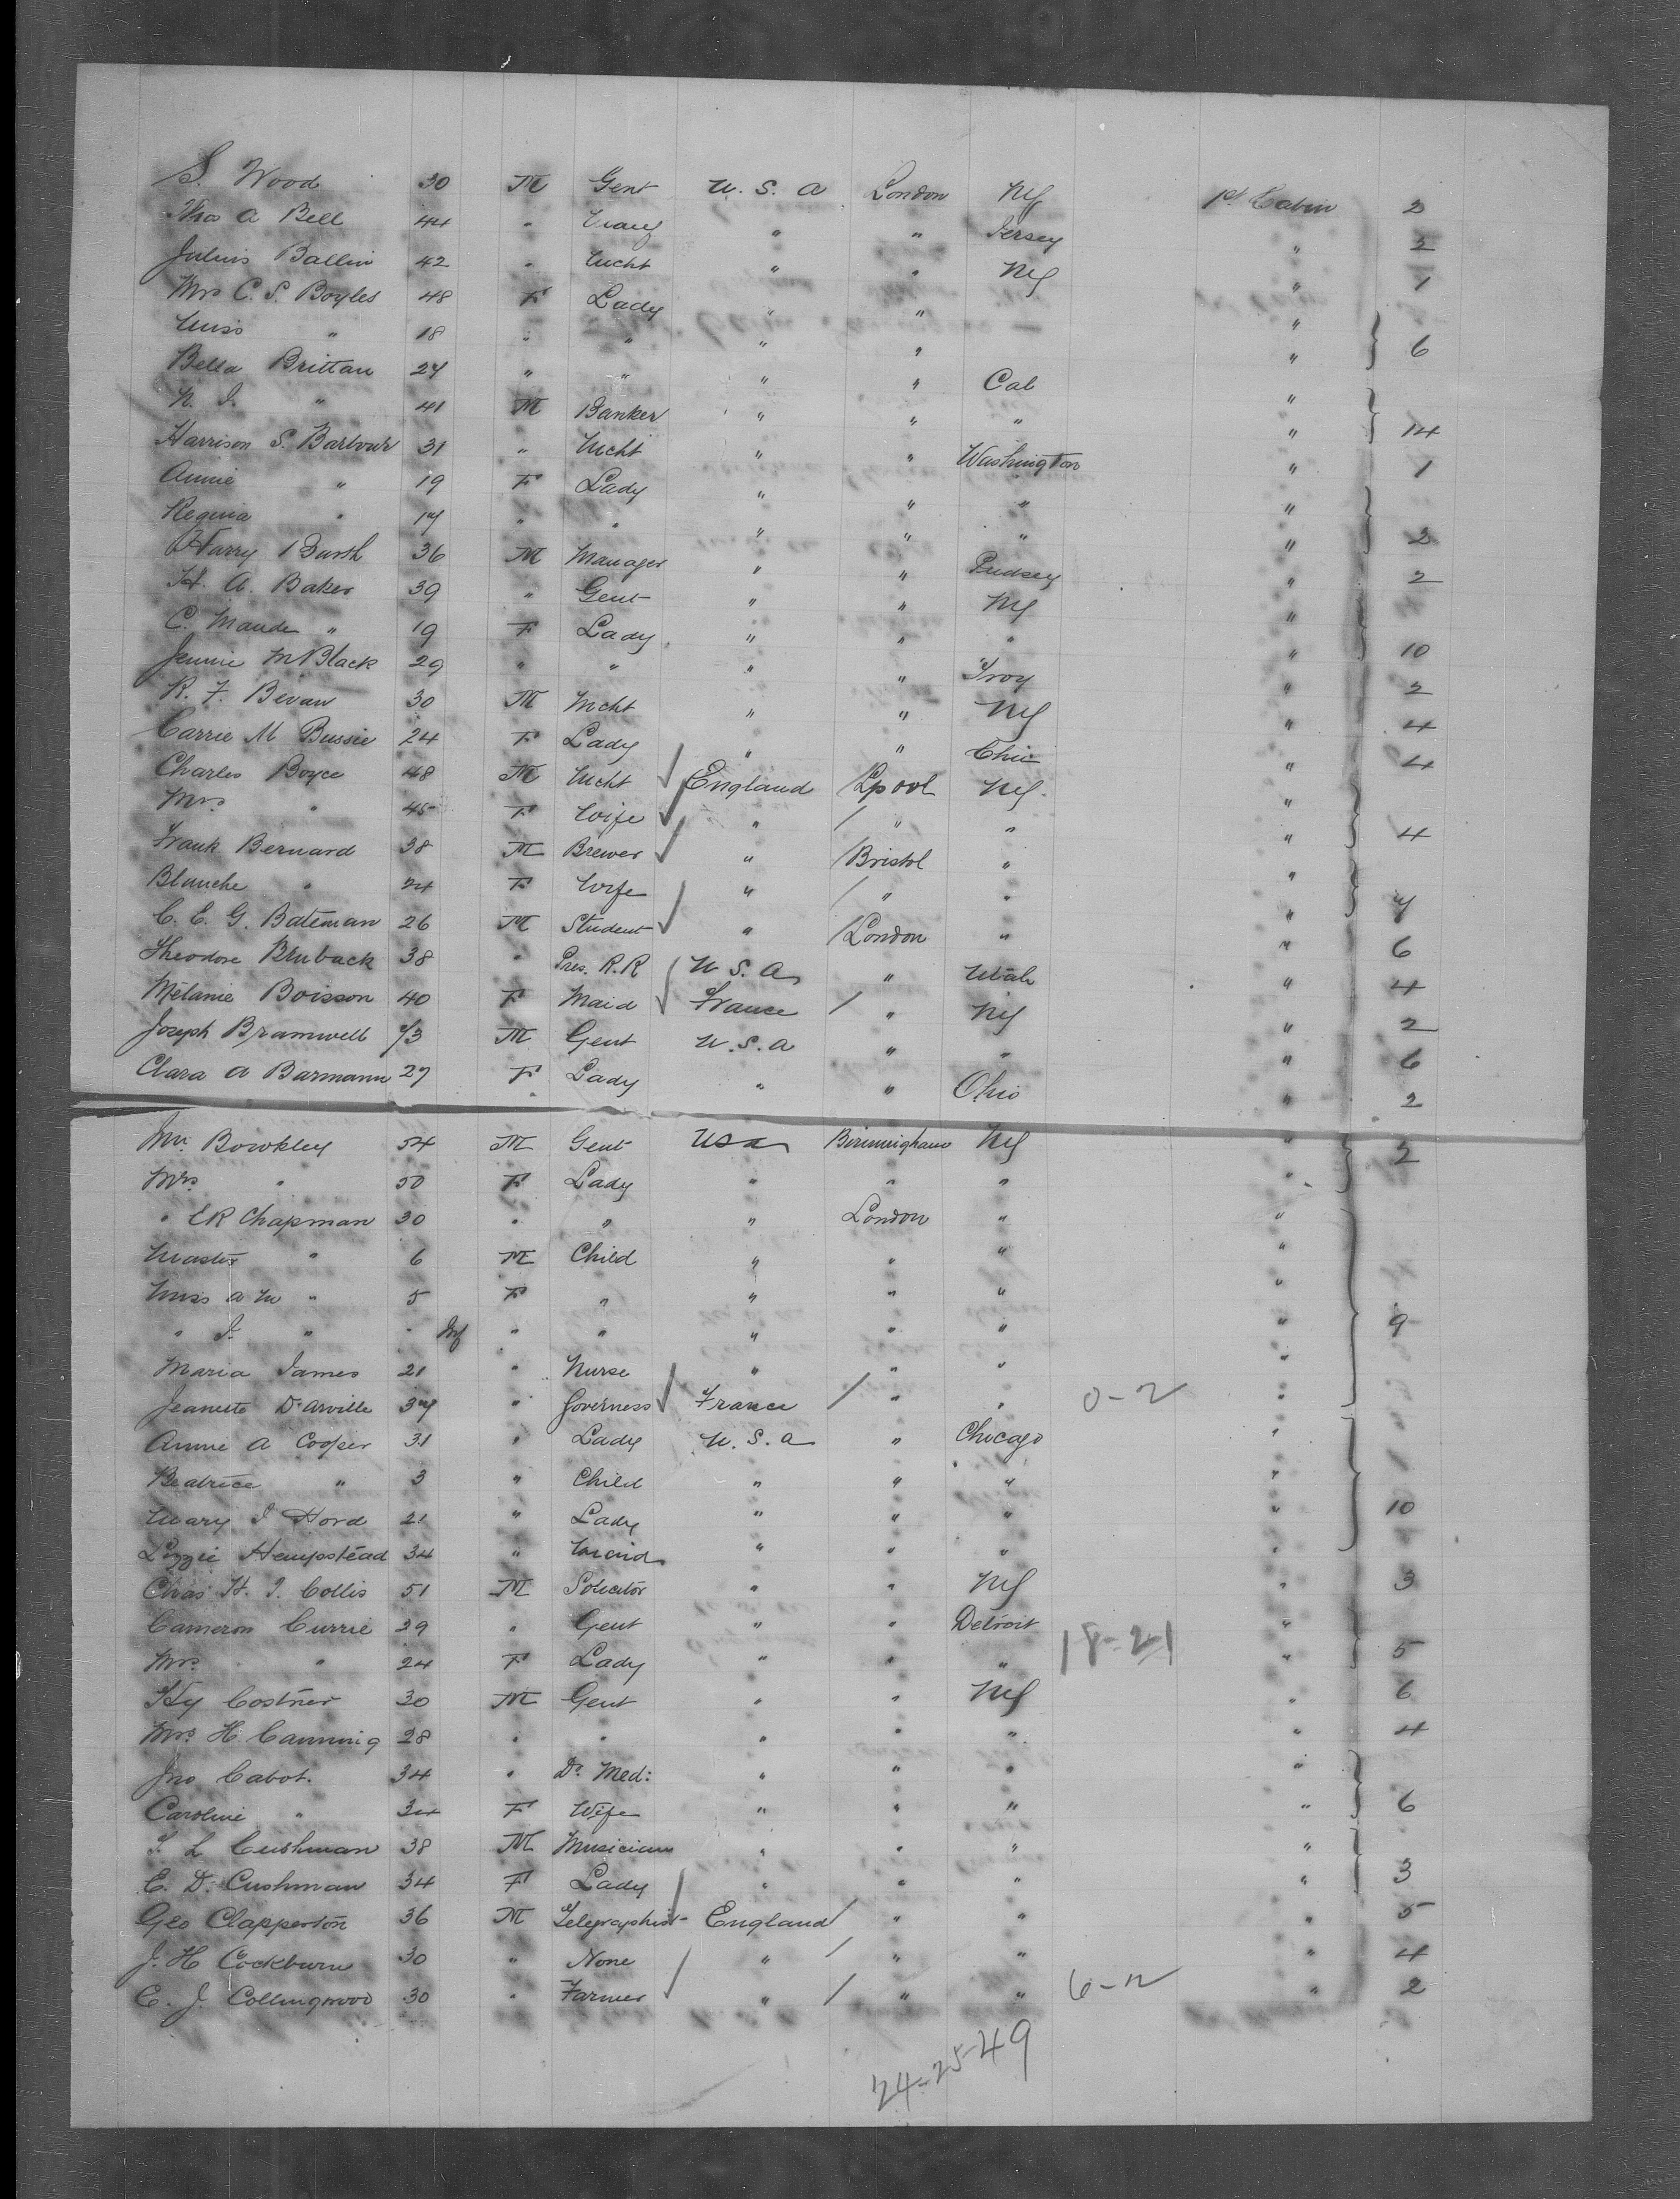 S. Wood 30 M Gent U.S.A London NY 1st Cabin 2
Thos A Bell 44 " " " Jersey " 2
Julius Ballin 42 " Mcht " " NY " 1
Mrs C. S. Boyles 48 F Lady " " "
Miss " 18 " " " " " } 6
Bella Brittan 27 " " " " Cal "
N. I. " 41 M Banker " " " " } 14
Harrison S. Barbour 31 " Mcht " " Washington " 1
Annie " 19 F Lady " " " "
Regina " 17 " " " " " " } 2
Harry Barth 36 M Manager " " Pudsey " 2
H. A. Baker 39 " Gent " " NY "
C. Maude " 19 F Lady " " " " } 10
Jennie M Black 29 " " " " Troy " 2
R. F. Bevan 30 M Mcht " " NY " 4
Carrie M Bussie 24 F Lady " " Chic " 4
Charles Boyce 48 M Mcht England Lpool NY "
Mrs " 45 F Wife " / " " " } 4
Frank Bernard 38 M Brewer " /Bristol " "
Blanche " 24 F Wife " / " " " } 7
C. E. G. Bateman 26 M Student " /London " " 6
Theodore Bruback 38 " Pres. R.R U.S.A " Utah " 4
Mélanie Boisson 40 F Maid France / " NY " 2
Joseph Bramwell 73 M Gent U.S.A " " " 6
Clara A Barmann 27 F Lady " " Ohio " 2
Mr. Bowkley 54 M Gent USA Birmingham NY " 2
Mrs " 50 F Lady " " " "
" ER Chapman 30 " " " London " "
Master " 6 M Child " " " "
Miss A M " 5 F " " " " "
" I. " " Inf " " " " " " } 9
Maria James 21 " Nurse " " " "
Jeanette D'Arville 37 " Governess France / " " 0-2 "
Annie A Cooper 31 " Lady U.S.A " Chicago "
Beatrice " 3 " Child " " " "
Mary I Hord 21 " Lady " " " " } 10
Lizzie Hempstead 34 " Maid " " " "
Chas H. T. Collis 51 M Solicitor " " NY " 3
Cameron Currie 29 " Gent " " Detroit "
Mrs " 24 F Lady " " " 18-21 " } 5
Hy Costner 30 M Gent " " NY " 6
Mrs H. Canning 28 " " " " " " 4
Jno Cabot. 34 " Dr. Med: " " " "
Caroline " 34 F Wife " " " " } 6
T L Cushman 38 M Musician " " " "
E. D. Cushman 34 F Lady " " " " } 3
Geo Clapperton 36 M Telegraphist England / " " " 5
J. H Cockburn 30 " None " / " " " 4
E. J. Collingwood 30 " Farmer " / " " 6-12 " 2
24-25-49